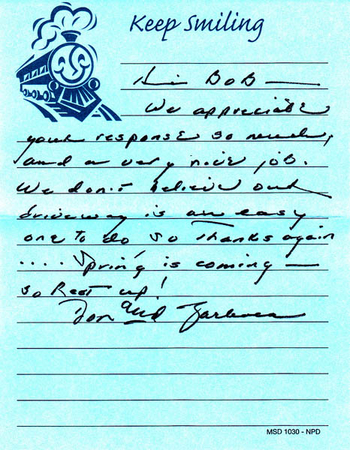 Keep Smiling
Hi BoB —
We appreciate
your response so much,
and a very nice job.
We don't believe our
driveway is an easy
one to do so Thanks again
.... Spring is coming —
so Rest up!
Don and Barbara
MSD 1030 - NPD